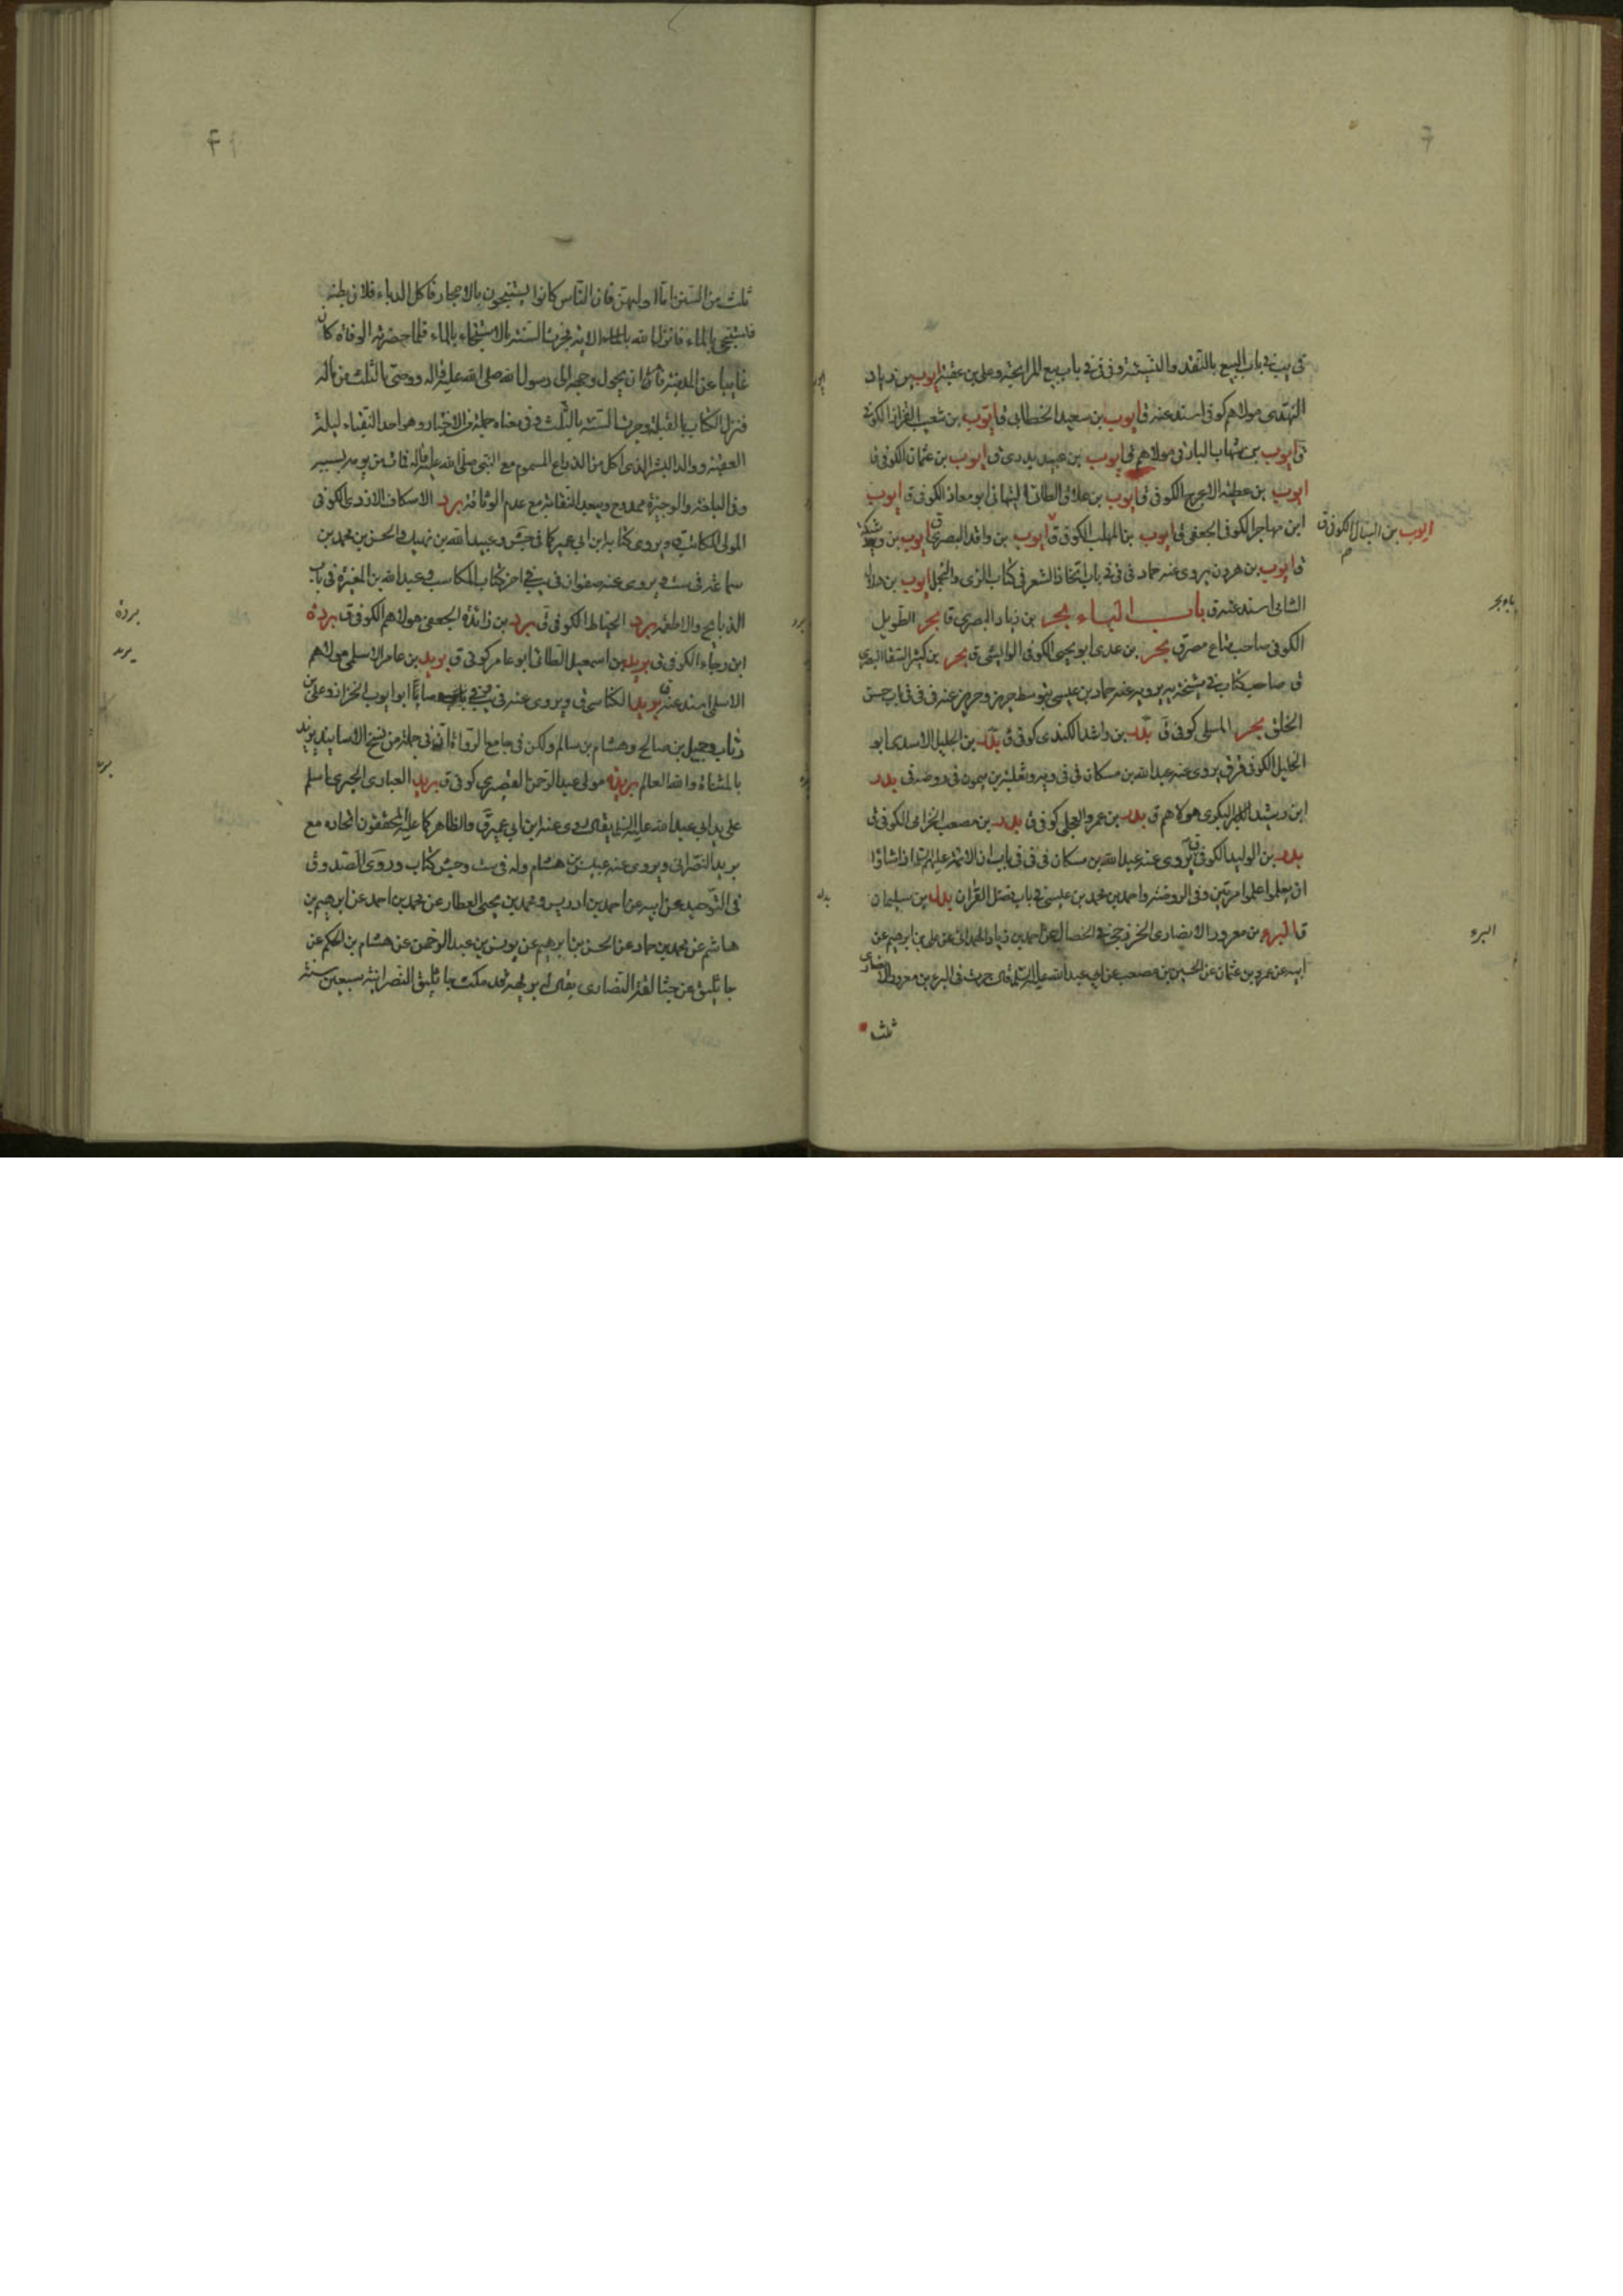 فى يب فى باب البيع بالنقد والنسيئة وفى فى باب بيع المرابحة وعلى بن عقبة ايوب بن زياد
النهدى مولاهم كوفى اسند عنه ق ايوب بن سعيد الخطابى ق ايوب بن شعيب القزاز الكوفى
ق ايوب بن شهاب البارقى مولاهم ق ايوب بن عبيد بدرى ايوب بن عثمان الكوفى ق
ايوب بن عطية الاعرج الكوفى ق ايوب بن علاق الطائى النبهانى ابو معاذ الكوفى ق ايوب
ابن مهاجر الكوفى الجعفى ق ايوب بن المهلب الكوفى ق ايوب بن واقد البصرى ق ايوب بن
ايوب بن النبال الكوفى ق
ق ايوب بن هرون يروى عنه حماد فى فى باب اتخاذ الشعر فى كتاب الزى والتجمل ايوب بن هلال
الشامى اسند عنه ق باب الباء بحر بن زياد البصرى ق بحر الطويل
الكوفى صاحب متاع مصر ق بحر بن عدى ابو يحيى الكوفى الوابشى ق بحر بن كثير السقا البصرى
ق صاحب كتاب فى مشيخة يرويه عنه حماد بن عيسى بتوسط حريز وحريز عنه فى فى باب حسن
الخلق بحر المسلى كوفى ق بدر بن راشد الكندى كوفى ق بدر بن الخليل الاسدى ابو
الخليل الكوفى يروى عنه عبدالله بن مسكان فى فى وثعلبة بن ميمون فى روضة بدر
ابن رشيد البكرى مولاهم ق بدر بن عمرو العجلى كوفى ق بدر بن مصعب الخزامى الكوفى ق
بدر بن الوليد الكوفى ق يروى عنه عبدالله بن مسكان فى فى باب ان الائمة عليهم السلام اذا شاؤا
ان يعلموا علموا مرتين وفى الروضة واحمد بن محمد بن عيسى فى باب فضل القران بدل بن سليمان
ق البراء بن معرور الانصارى الخزرجى فى الخصال عن احمد بن زياد الهمدانى عن على بن ابراهيم عن
ابيه عن عمرو بن عثمان عن الحسين بن مصعب عن ابى عبدالله عليه السلام قال جرت فى البراء بن معرور الانصارى
ثلث
باء بحر
البراء
ثلث من السنن اما اولهن فان الناس كانوا يستنجون بالاحجار فاكل الدباء فلان بطنه
فاستنجى بالماء فانزل الله الاية فجرت السنة بالاستنجاء بالماء فلما حضرته الوفاة كان
غايبا عن المدينة فامر ان يحول وجهه الى رسول الله صلى الله عليه واله ووصى بالثلث من ماله
فنزل الكتاب بالقبلة وجرت السنة بالثلث وفى معناه جملة من الاخبار وهو احد النقباء ليلة
العقبة ووالد البشر الذى اكل من الذراع المسموم مع النبى صلى الله عليه واله فمات من يومه
وفى البلغة والوجيزة ممدوح ويبعد النقابة مع عدم الوثاقة برد الاسكاف الازدى الكوفى
المولى المكاتب ويروى كتابه ابن ابى عمير كما فى جش وعبيد الله بن نهيك والحسن بن محمد بن
سماعة فى ست ويروى عنه صفوان فى يب فى اخر كتاب المكاسب وعبدالله بن المغيرة فى باب
الذبايح والاطعمة برد الخياط الكوفى ق برد بن زائدة الجعفى مولاهم الكوفى ق بردة
ابن رجاء الكوفى ق بريد بن اسمعيل الطائى ابو عامر كوفى ق بريد بن عامر الاسلمى مولاهم
الاسلمى اسند عنه ق بريد الكناسى ق ويروى عنه فى ابو ايوب الخزاز وعلى بن
رئاب وجميل بن صالح وهشام بن سالم ولكن فى جامع الرواة انه فى جملة من نسخ الاسانيد يزيد
بالمثناة والله العالم بريه مولى عبد الرحمن القصير كوفى ق بريد العبادى الحيرى اسلم
على يد ابى عبدالله عليه السلام يروى عنه ابن ابى عمير ق والظاهر كما عليه المحققون اتحاده مع
بريه النصرانى ويروى عنه عبيس بن هشام وله فى ست وجش كتاب وروى الصدوق
فى التوحيد عن ابيه عن احمد بن ادريس ومحمد بن يحيى العطار عن محمد بن احمد عن ابرهيم بن
هاشم عن محمد بن حماد عن الحسن بن ابرهيم عن يونس بن عبد الرحمن عن هشام بن الحكم عن
جاثليق من جثالقة النصارى يقال له بريهة قد مكث جاثليق النصرانية سبعين سنة
بردة
بريد